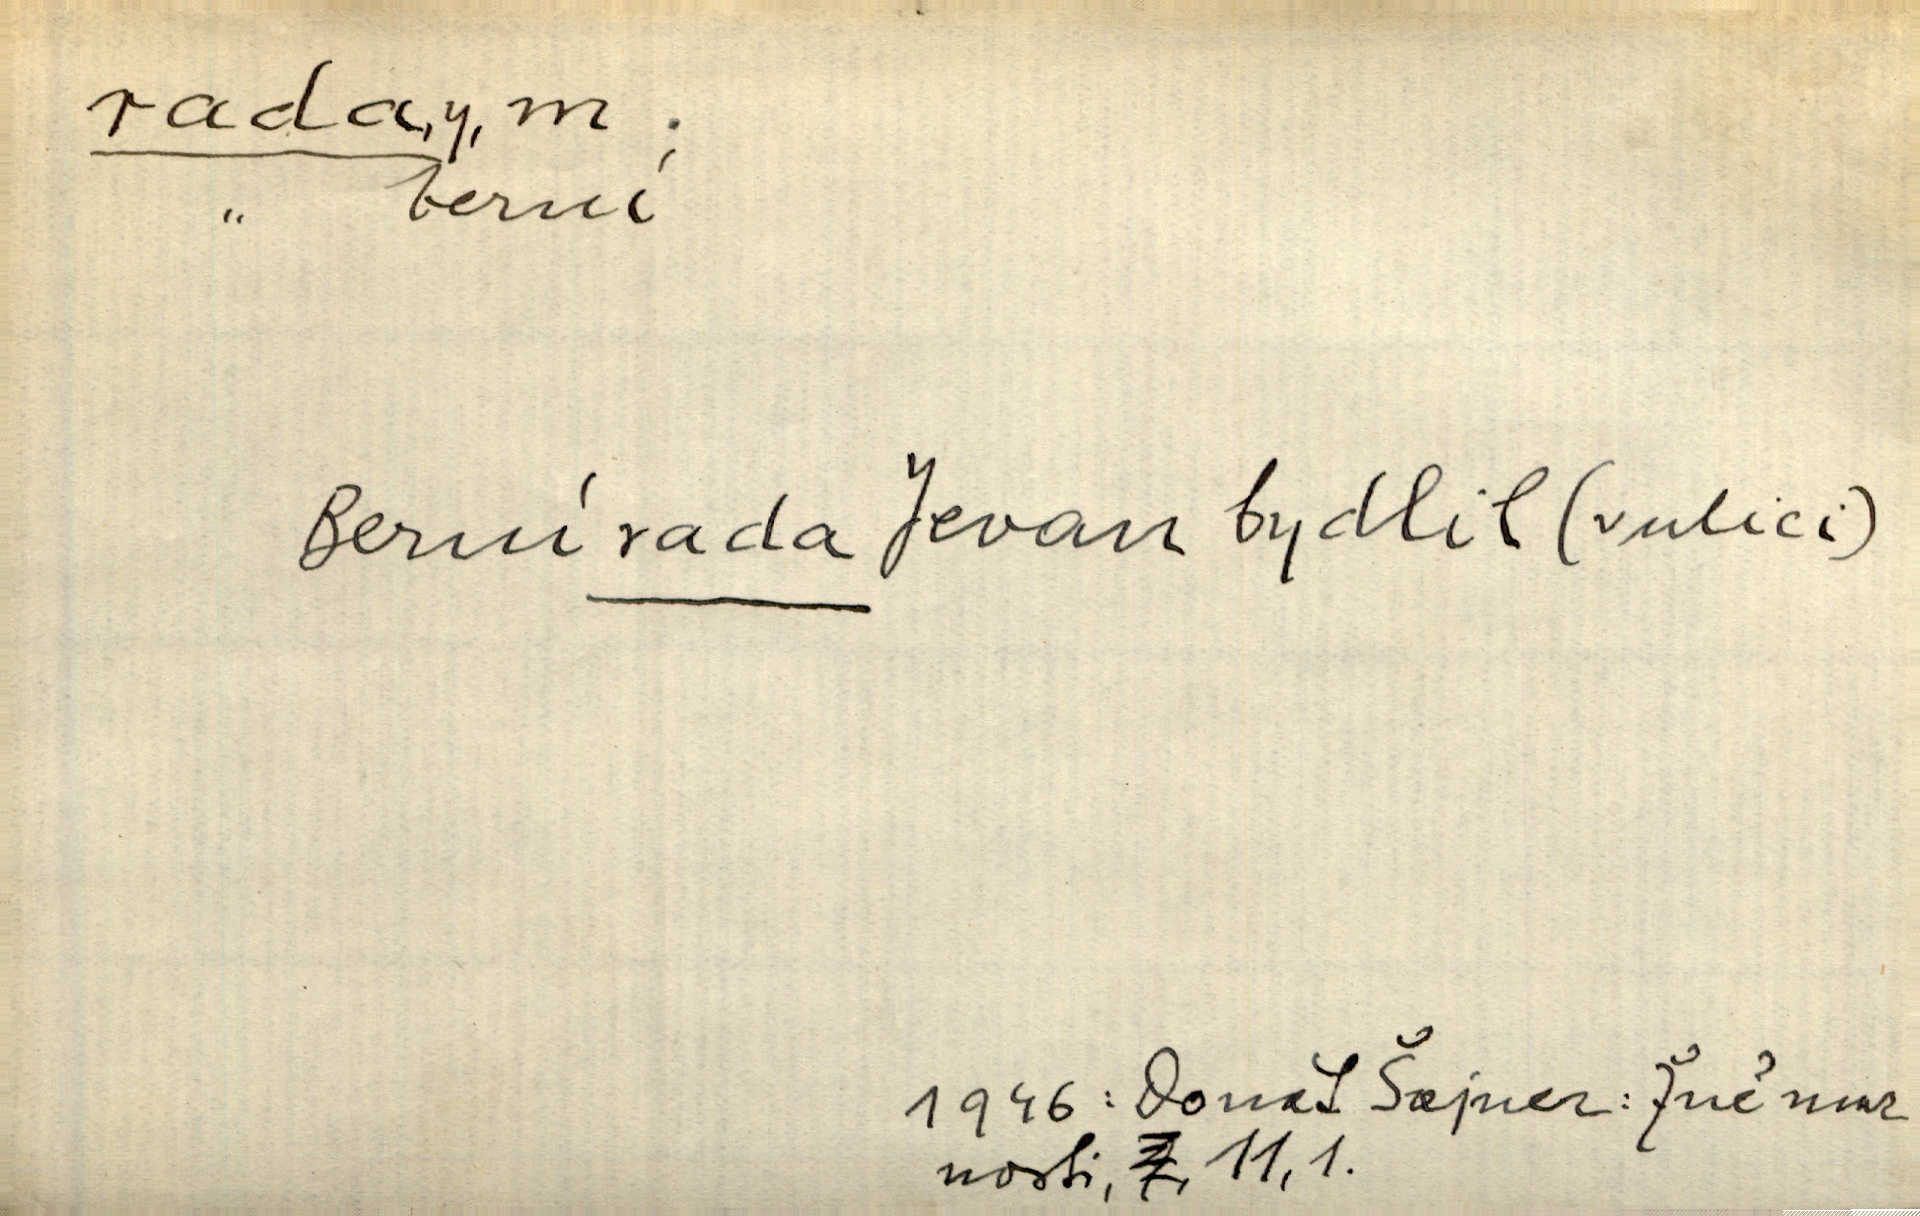 rada,y, m ;
" berní
Berní rada Jevan bydlil (v ulici)
1946: Donát Šajner: Žně mar
nosti, 11, 1.